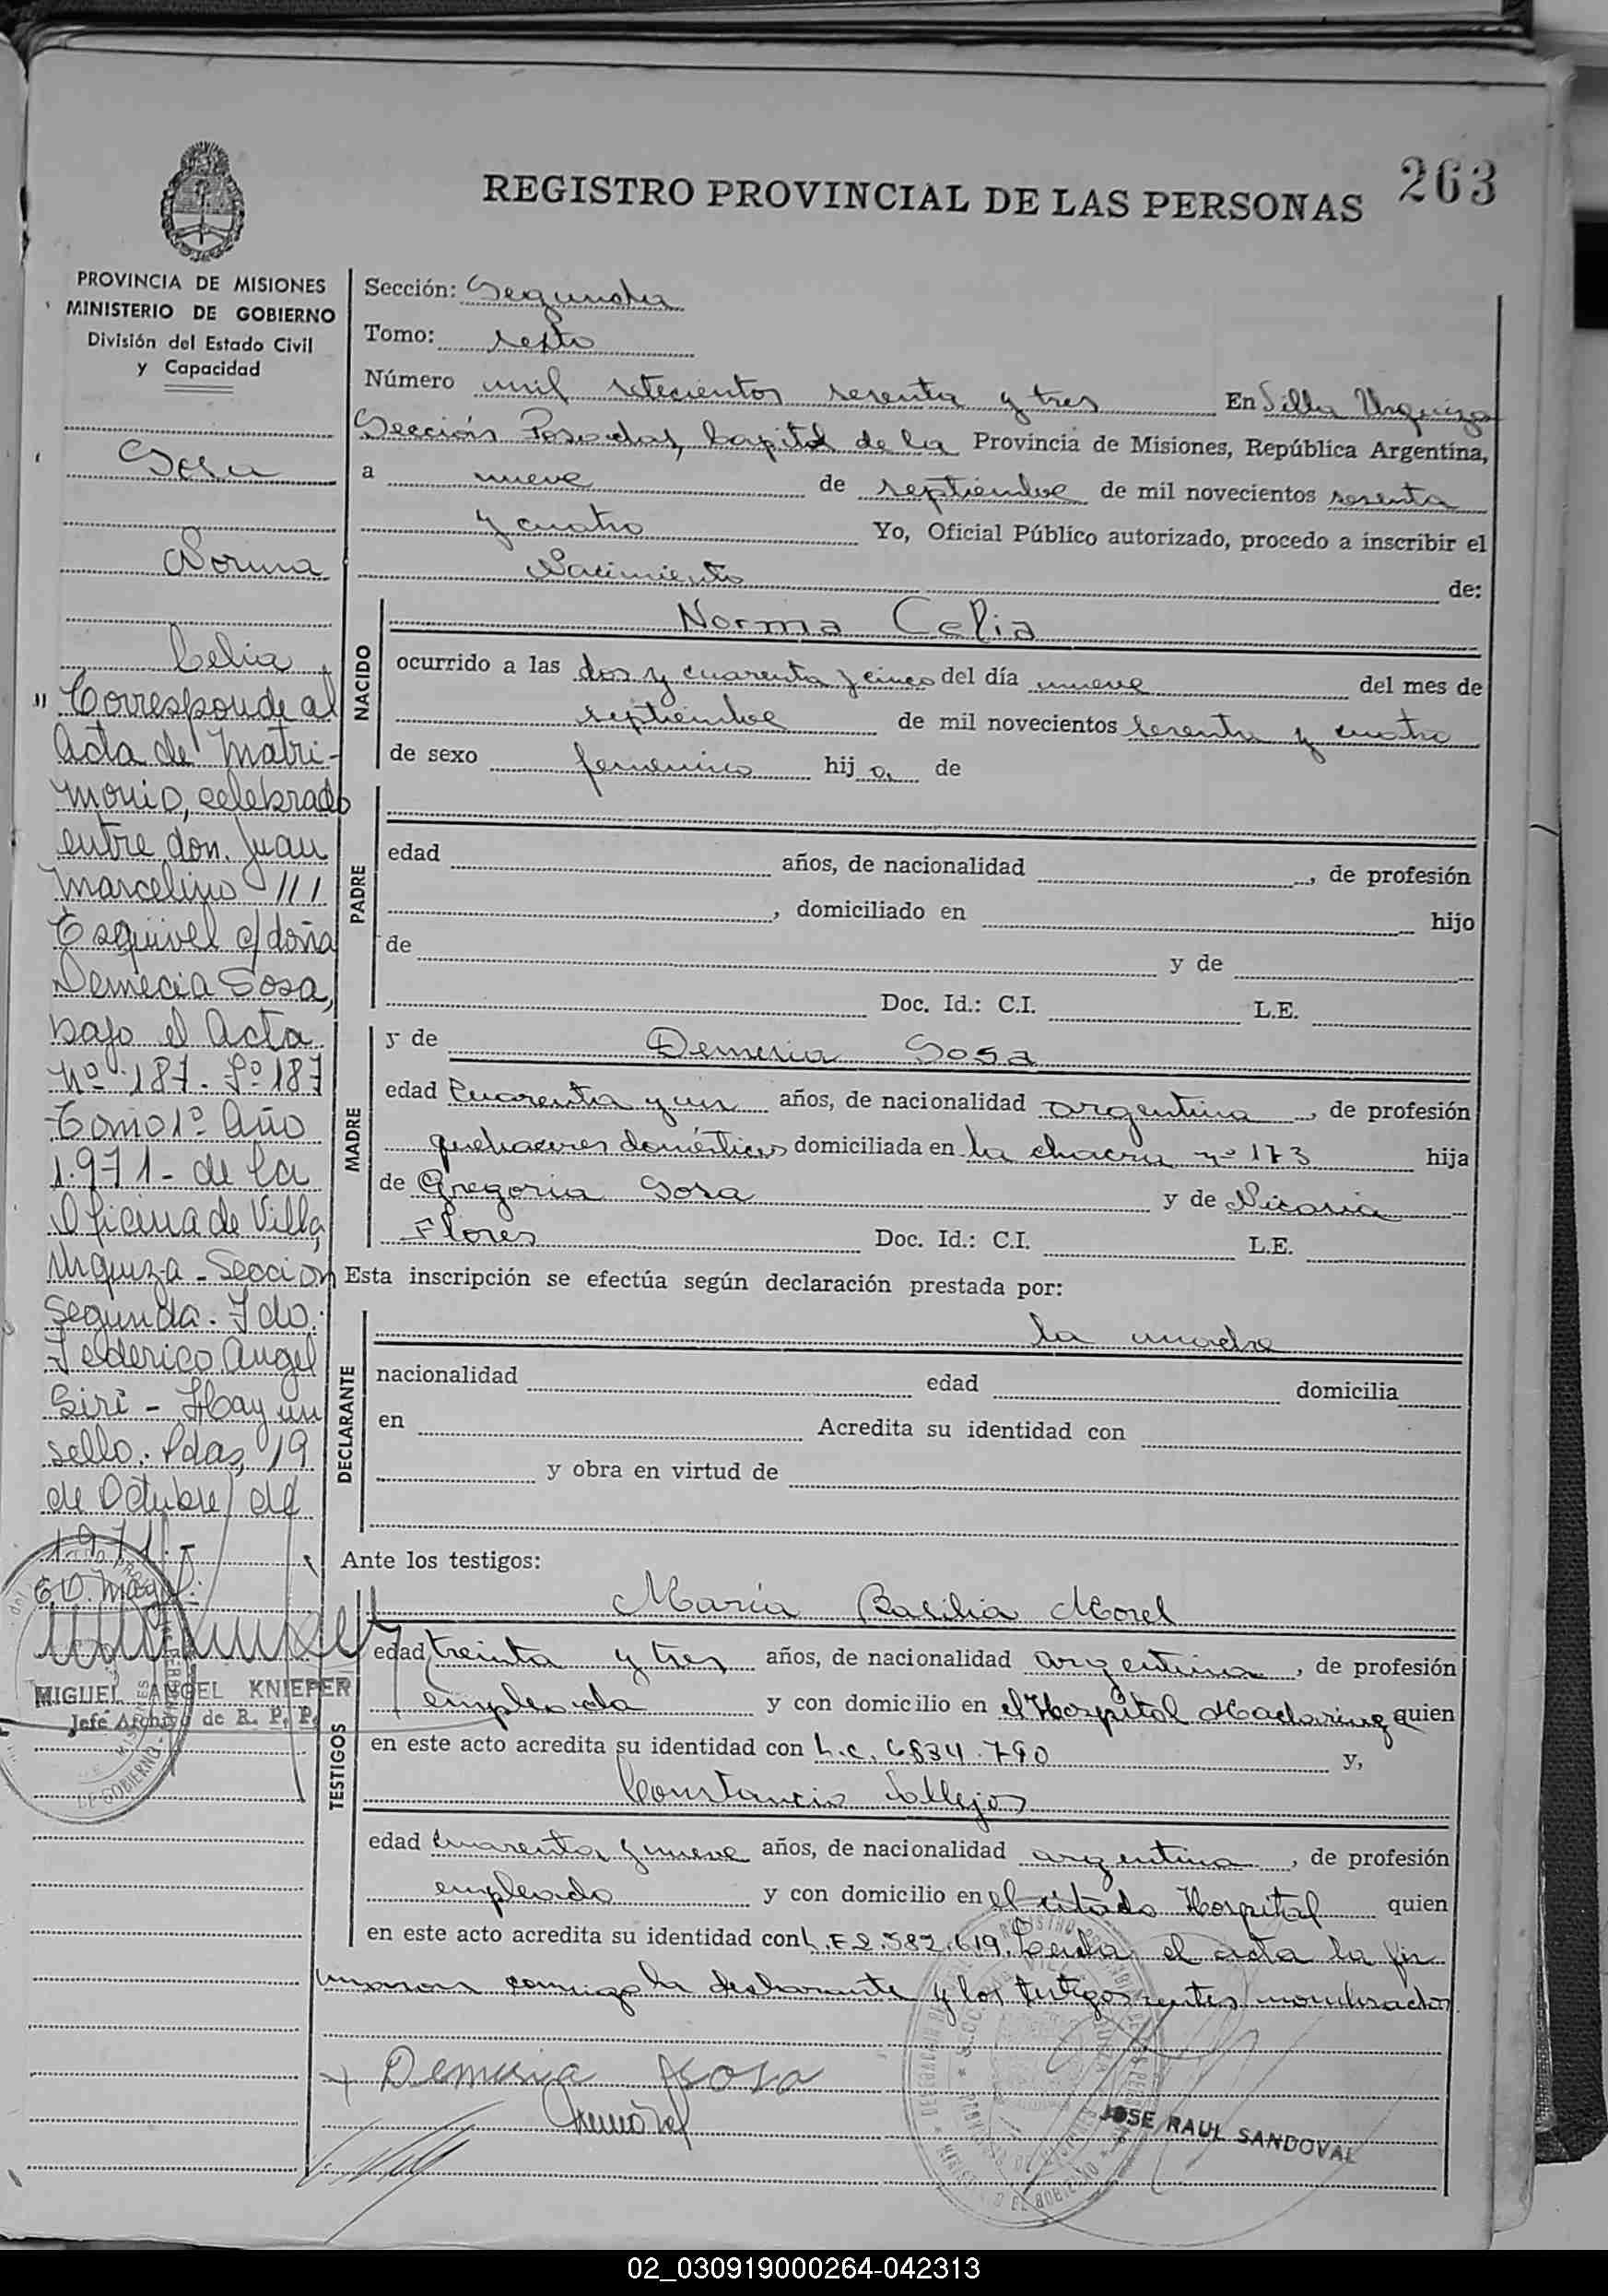 263
REGISTRO PROVINCIAL DE LAS PERSONAS
PROVINCIA DE MISIONES
MINISTERIO DE GOBIERNO
División del Estado Civil
y Capacidad
Sosa
Norma
Celia
" Corresponde al
Acta de Matri-
monio, celebrado
entre don Juan
Marcelino ///
Esquivel c/ doña
Demecia Sosa,
bajo el Acta
Nº 187. Fº 187
Tomo 1º Año
1.971 - de la
Oficina de Villa
Urquiza - Sección
Segunda. Fdo.
Federico Angel
Siri - Hay un
sello. Pdas, 19
de Octubre de
1971. -
MIGUEL ANGEL KNIEPER
Jefe Archivo de R. P. P.
Sección: Segunda
Tomo: sexto
Número mil setecientos sesenta y tres En Villa Urquiza
Sección Posadas, Capital de la Provincia de Misiones, República Argentina,
a nueve de septiembre de mil novecientos sesenta
y cuatro Yo, Oficial Público autorizado, procedo a inscribir el
Nacimiento de:
NACIDO
Norma Celia
ocurrido a las dos y cuarenta y cinco del día nueve del mes de
septiembre de mil novecientos sesenta y cuatro
de sexo femenino hija de
PADRE
edad años, de nacionalidad , de profesión
, domiciliado en hijo
de y de
Doc. Id.: C.I. L.E.
MADRE
y de Demesia Sosa
edad Cuarenta y un años, de nacionalidad argentina , de profesión
quehaceres domésticos domiciliada en la chacra nº 173 hija
de Gregoria Sosa y de Nicasia
Flores Doc. Id.: C.I. L.E.
Esta inscripción se efectúa según declaración prestada por:
DECLARANTE
la madre
nacionalidad edad domicilia
en Acredita su identidad con
y obra en virtud de
Ante los testigos:
TESTIGOS
María Basilia Morel
edad treinta y tres años, de nacionalidad argentina , de profesión
empleada y con domicilio en el Hospital Madariaga quien
en este acto acredita su identidad con L.C. 6834.790 y,
Constancio Vallejos
edad cuarenta y nueve años, de nacionalidad argentina , de profesión
empleado y con domicilio en el citado Hospital quien
en este acto acredita su identidad con L.E 2.582.619. Leída el acta la fir
maron conmigo la declarante y los testigos antes nombrados
Demesia Sosa
JOSE RAUL SANDOVAL
02_030919000264-042313